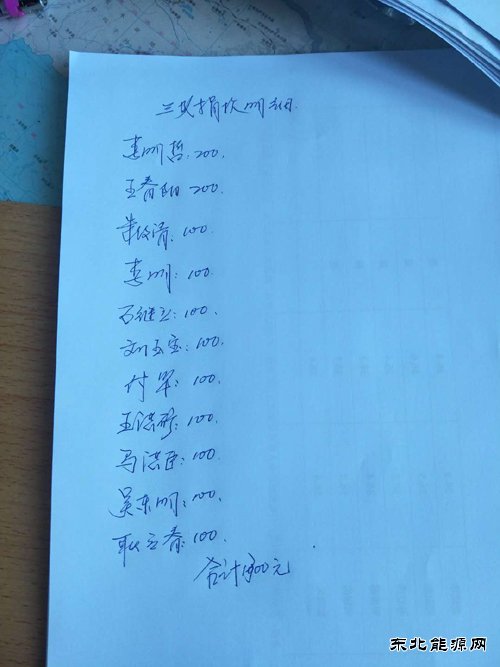 三队捐款明细
李明哲:200.
王春阳 200.
100.
李明:100.
石继立:100.
刘玉宝:100.
付军:100.
王洪彦:100.
马洪臣:100.
吴东明:100.
耿立春:100.
合计1300元
东北能源网